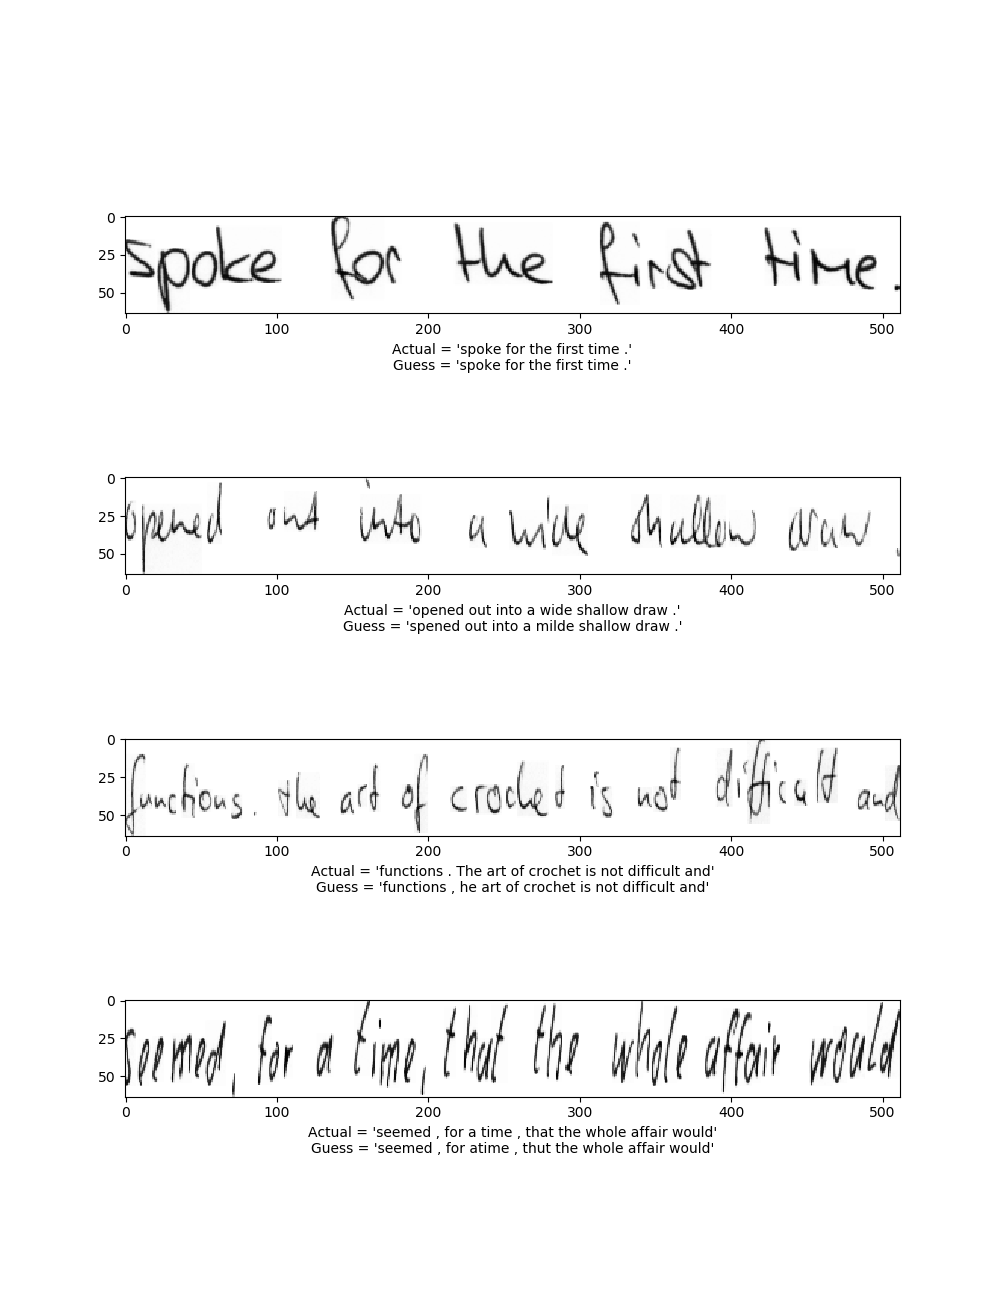 0
25
50
spoke for the first time.
0 100 200 300 400 500
Actual = 'spoke for the first time .'
Guess = 'spoke for the first time .'
0
25
50
opened out into a wide shallow draw .
0 100 200 300 400 500
Actual = 'opened out into a wide shallow draw .'
Guess = 'spened out into a milde shallow draw .'
0
25
50
functions. the art of crochet is not difficult and
0 100 200 300 400 500
Actual = 'functions . The art of crochet is not difficult and'
Guess = 'functions , he art of crochet is not difficult and'
0
25
50
seemed, for a time, that the whole affair would
0 100 200 300 400 500
Actual = 'seemed , for a time , that the whole affair would'
Guess = 'seemed , for atime , thut the whole affair would'